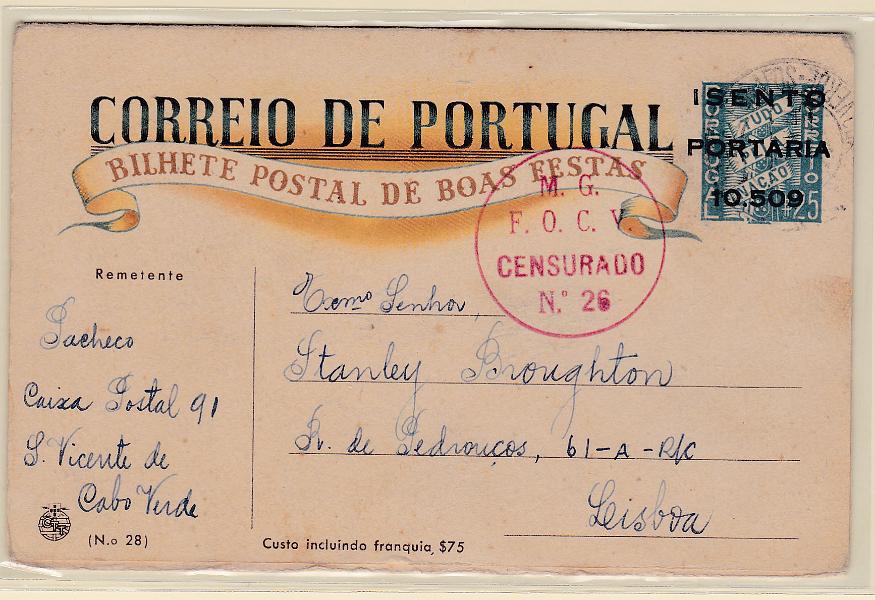 CORREIO DE PORTUGAL
BILHETE POSTAL DE BOAS FESTAS
ISENTO
PORTARIA
10.509
TUDO
NAÇÃO
PORTUGAL
25
M. G.
F. O. C. V
CENSURADO
N.º 26
Remetente
Pacheco
Caixa Postal 91
S. Vicente de
Cabo Verde
(N.o 28)
Exmo Senhor
Stanley Broughton
R. de Pedrouços, 61-A-R/C
Lisboa
Custo incluíndo franquia, $75